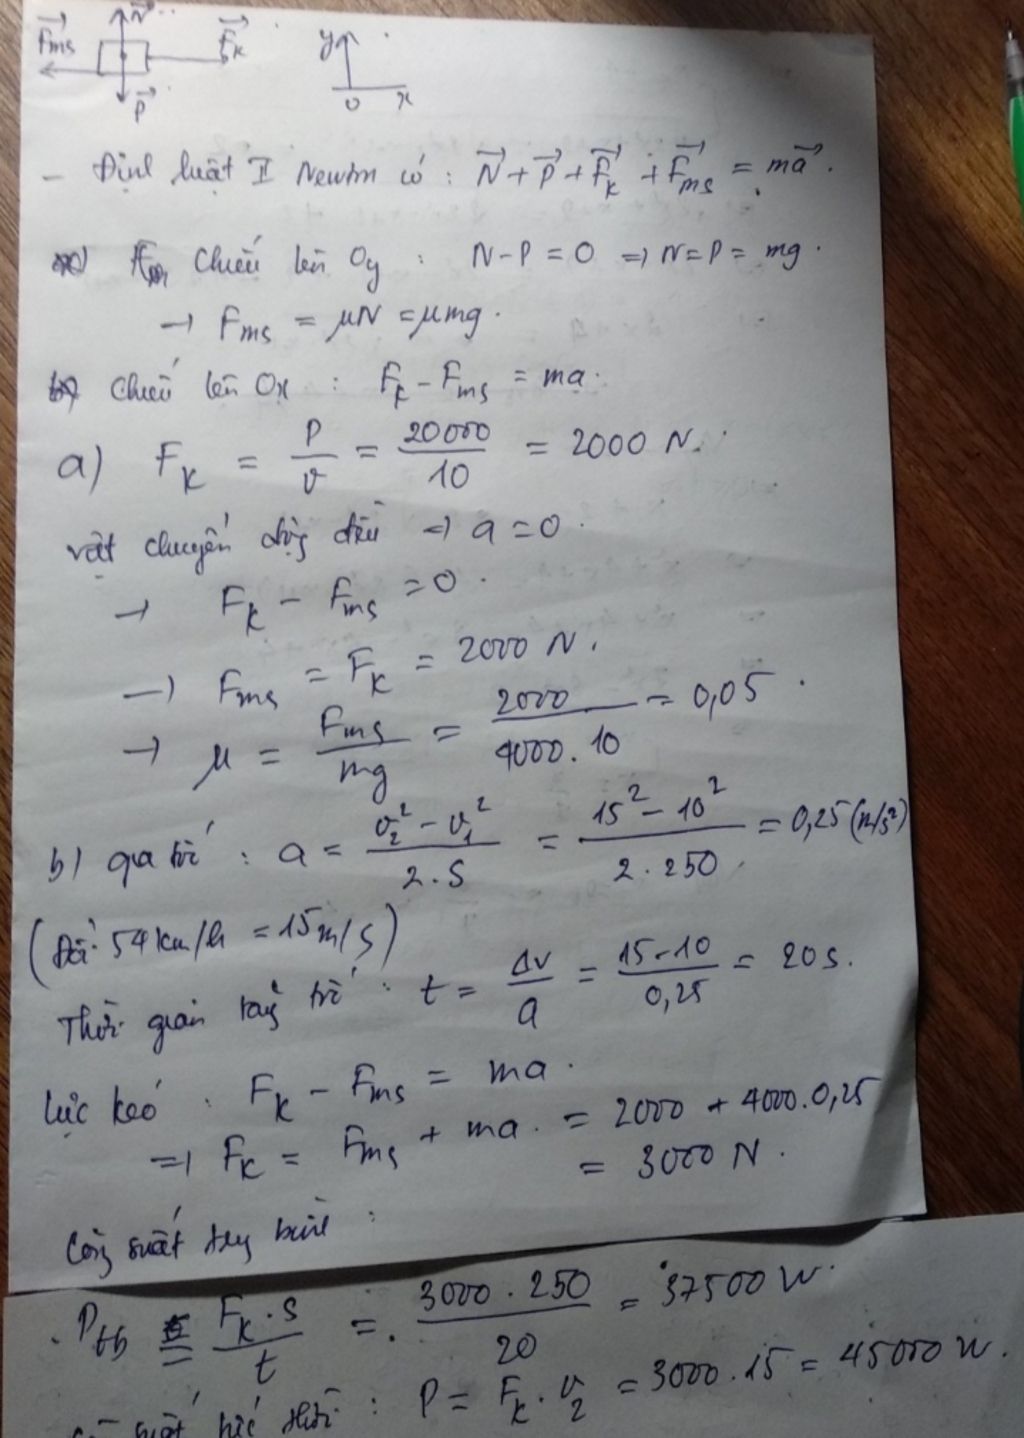 N⃗
F⃗ms F⃗k y
P⃗ O x
- Định luật II Newton có : N⃗ + P⃗ + F⃗k + F⃗ms = ma⃗ .
Chiếu lên Oy : N - P = 0 => N = P = mg .
→ Fms = μN = μmg .
Chiếu lên Ox : Fk - Fms = ma .
a) Fk = P/v = 20000/10 = 2000 N .
vật chuyển động đều => a = 0 .
→ Fk - Fms = 0 .
→ Fms = Fk = 2000 N .
→ μ = Fms/mg = 2000/4000.10 = 0,05 .
b) gia tốc : a = (v₂² - v₁²)/2.S = (15² - 10²)/2.250 = 0,25 (m/s²)
(Đổi 54 km/h = 15 m/s)
Thời gian tăng tốc : t = Δv/a = 15-10/0,25 = 20 s .
lực kéo : Fk - Fms = ma .
=> Fk = Fms + ma . = 2000 + 4000.0,25
= 3000 N .
Công suất trung bình :
. Ptb = Fk.s/t = . 3000.250/20 = 37500 W .
suất tức thời : P = Fk . v₂ = 3000.15 = 45000 W .